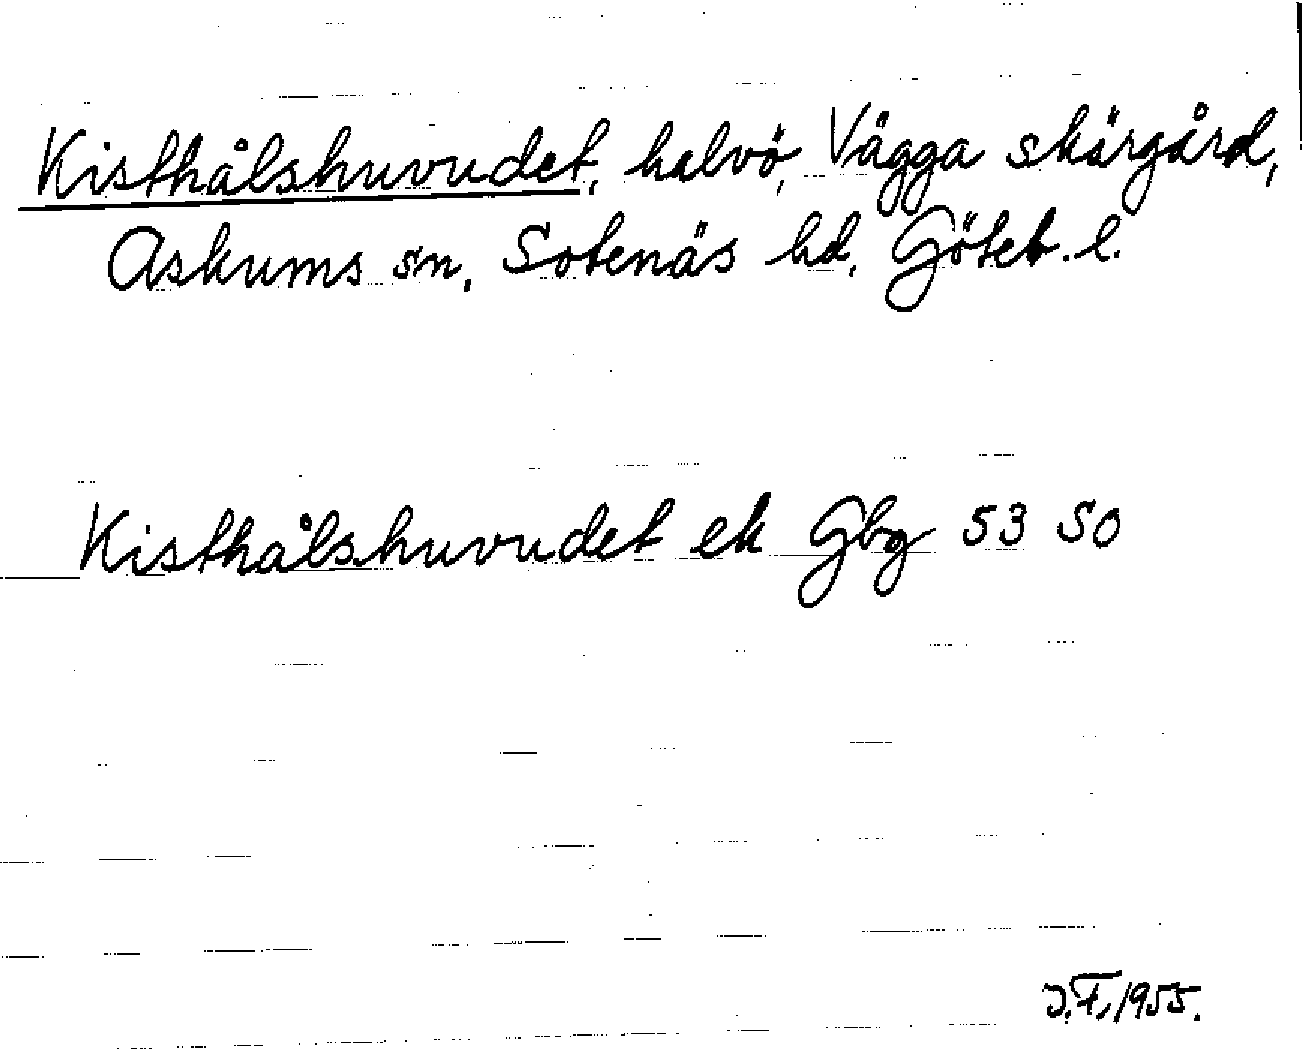 Kisthålshuvudet, halvö, Vägga skärgård,
Askums sn, Sotenäs hd, Göteb. l.
Kisthålshuvudet ek Gbg 53 SO
J.F, 1955.